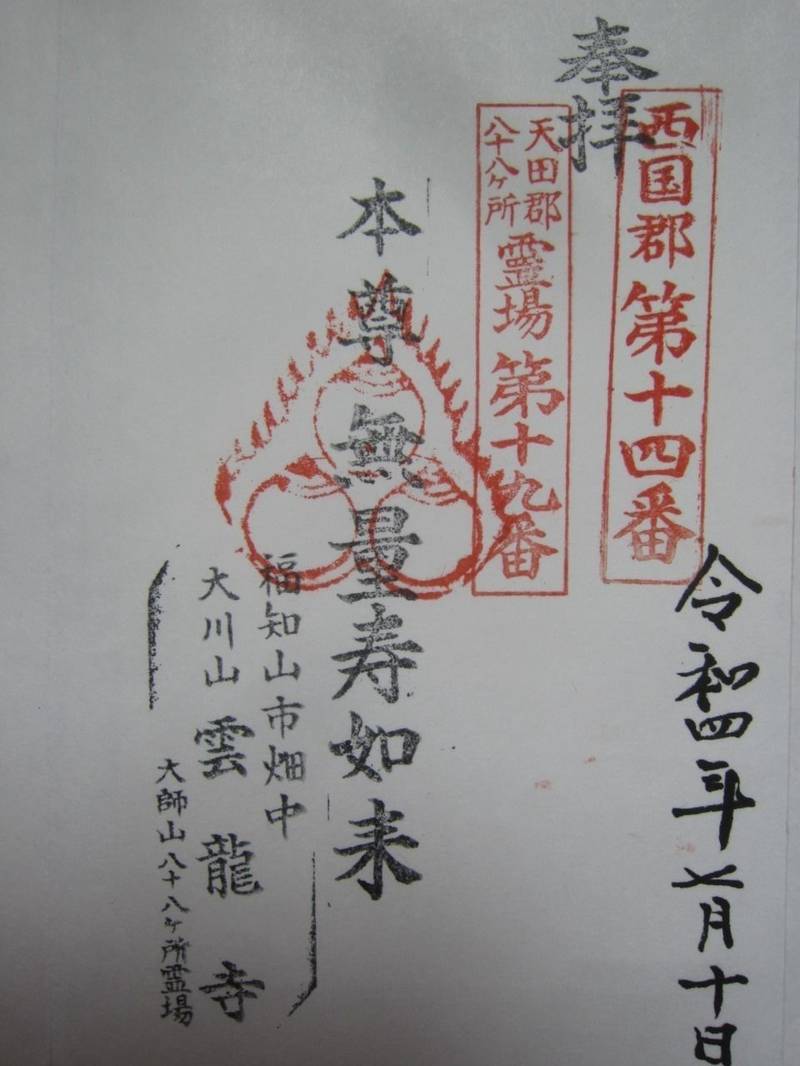 奉拝
西国郡第十四番
令和四年七月十日
天田郡
八十八ヶ所
霊場第十九番
本尊無量寿如来
福知山市畑中
大川山雲龍寺
大師山八十八ヶ所霊場